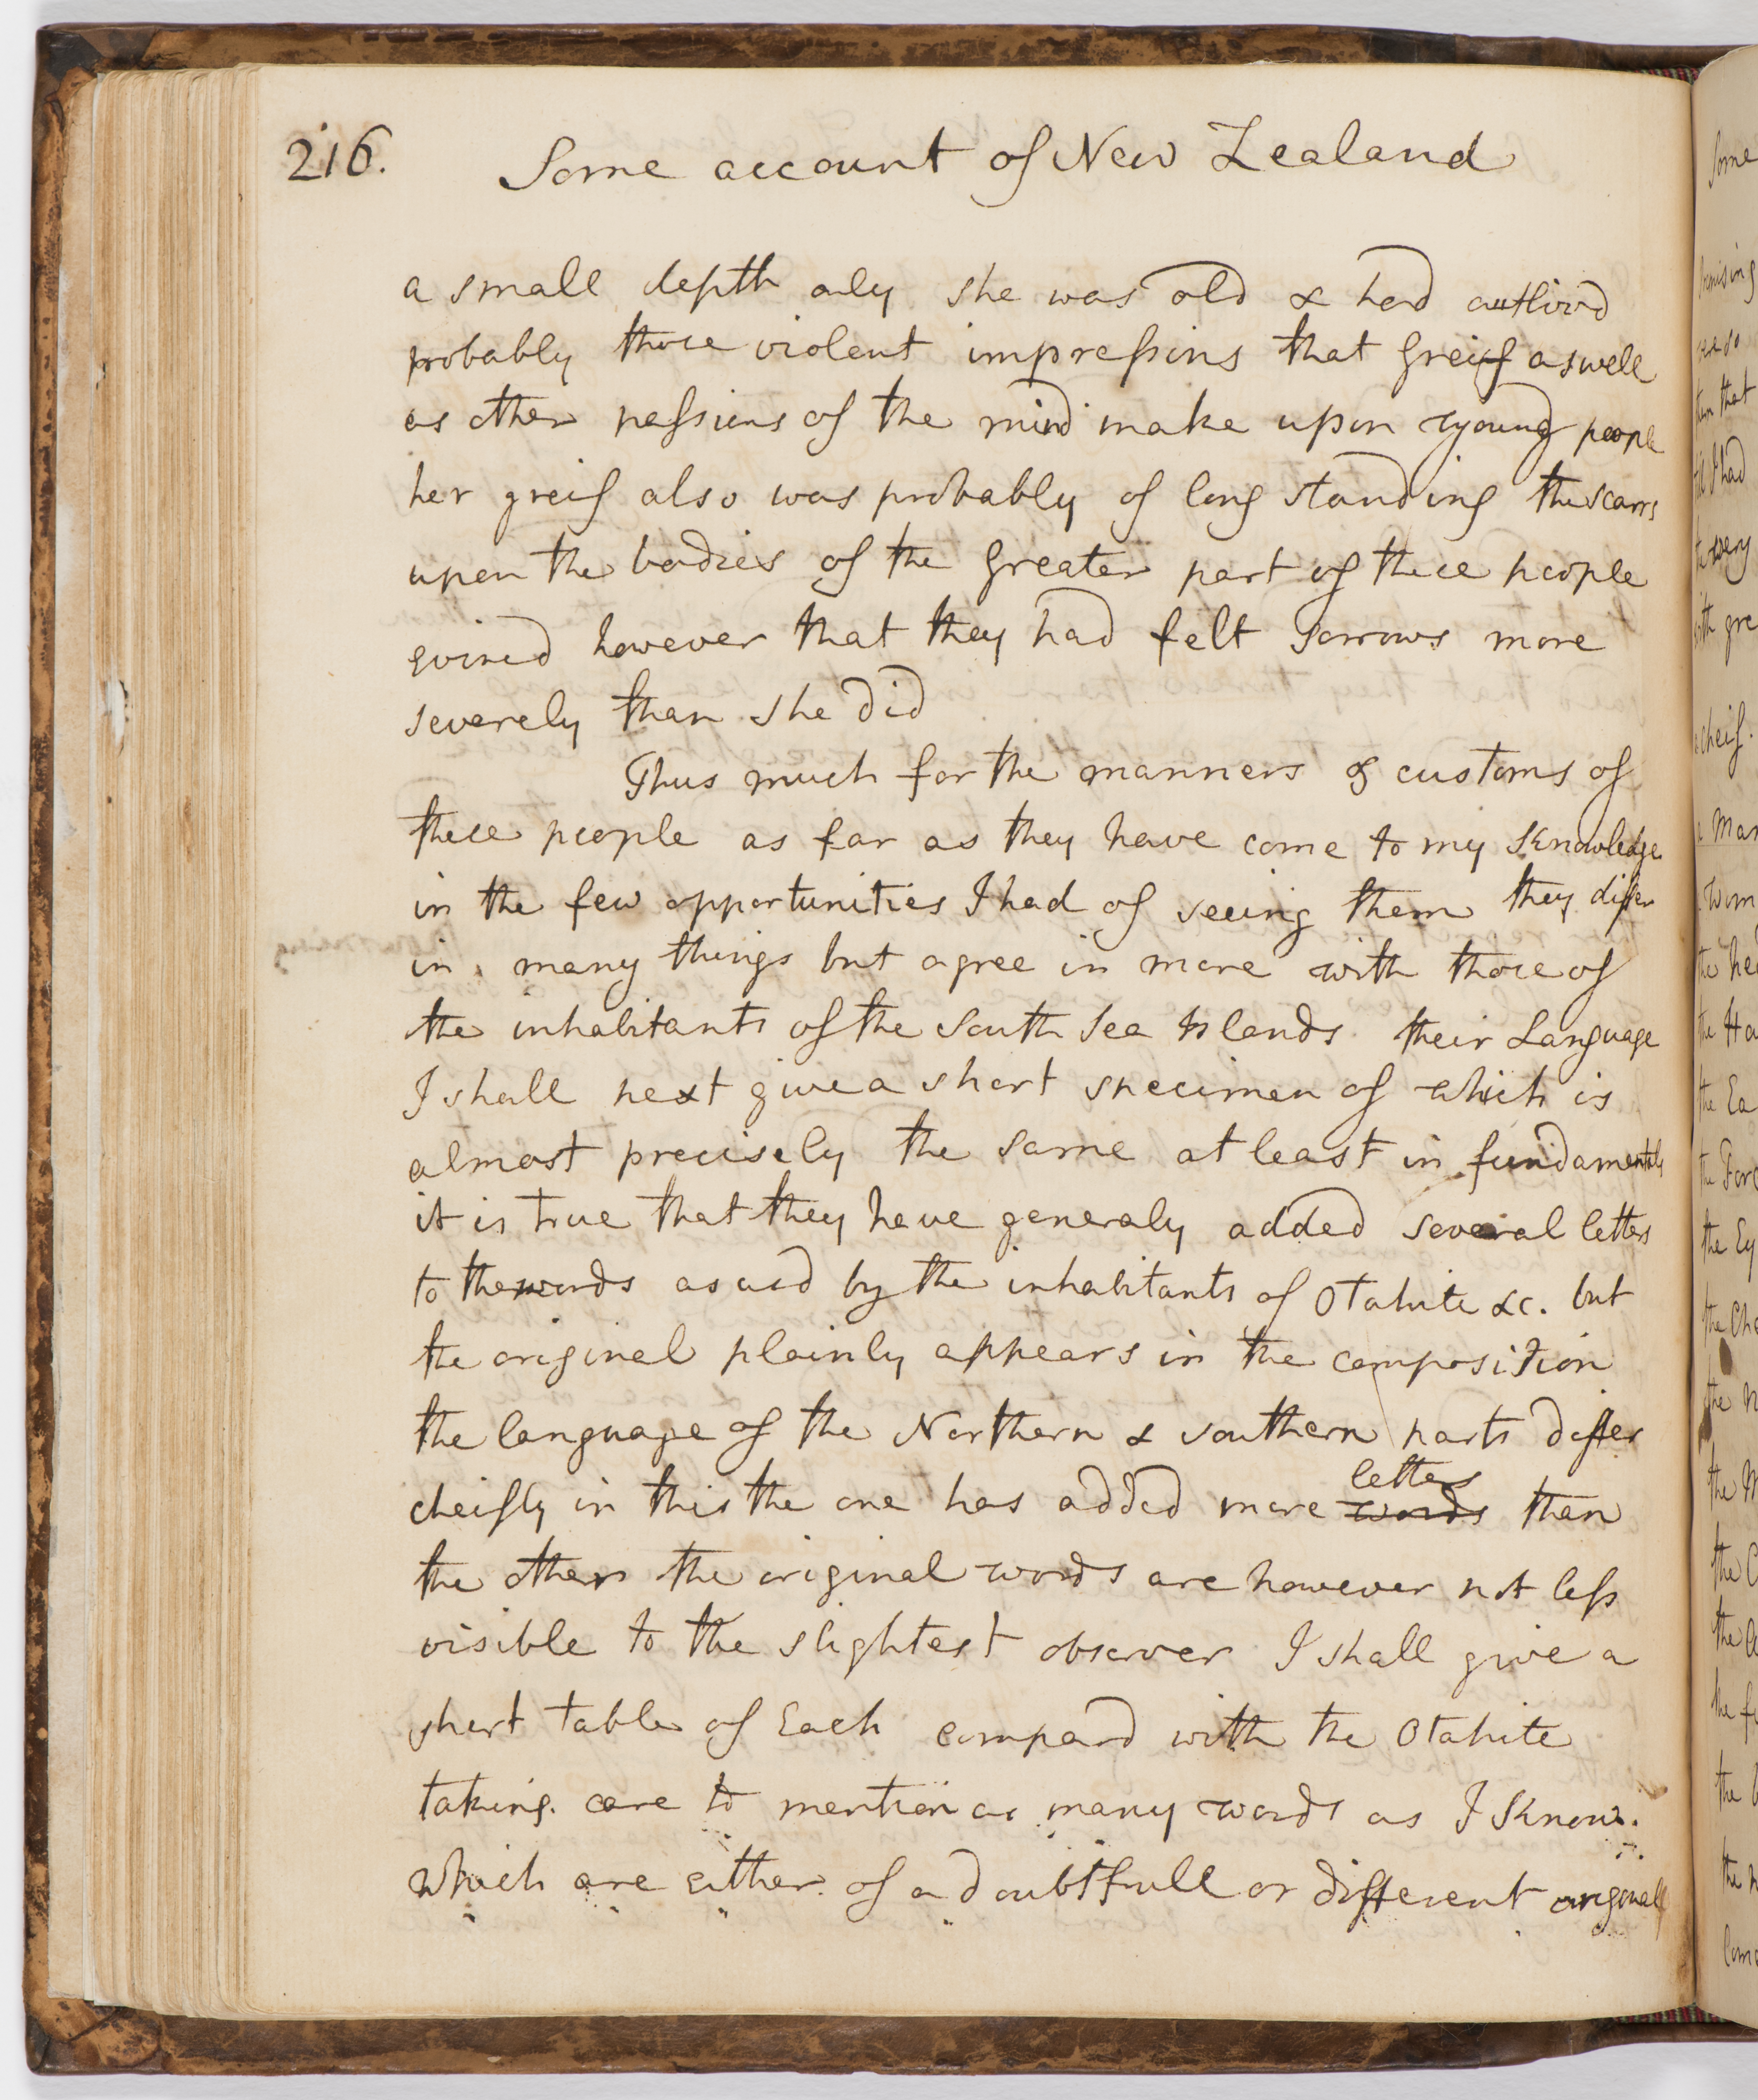 216.
Some account of New Zealand
a small depth only she was old & had outlivd
probably those violent impressions that greif as well
as other passions of the mind make upon young people
her greif also was probably of long standing the scarrs
upon the bodies of the greater part of these people
evincd however that they had felt sorrows more
severely than she did
Thus much for the manners & customs of
these people as far as they have come to my knowledge
in the few opportunities I had of seeing them they differ
in many things but agree in more with those of
the inhabitants of the South Sea Islands their Language
I shall next give a short specimen of which is
almost precisely the same at least in fundamentals
it is true that they have generaly added several letters
to the words as usd by the inhabitants of Otahite &c. but
the original plainly appears in the composition
the language of the Northern & southern parts differ
cheifly in this the one has added more letters words than
the other the original words are however not less
visible to the slightest observer I shall give a
short table of Each compard with the Otahite
taking care to mention as many words as I know
which are either of a doubtfull or different originall
Some
them that
till I had
the very
with gre
a cheif.
a Man
the hea
the Ha
the Ea
the Fore
the Ey
the Che
the N
the M